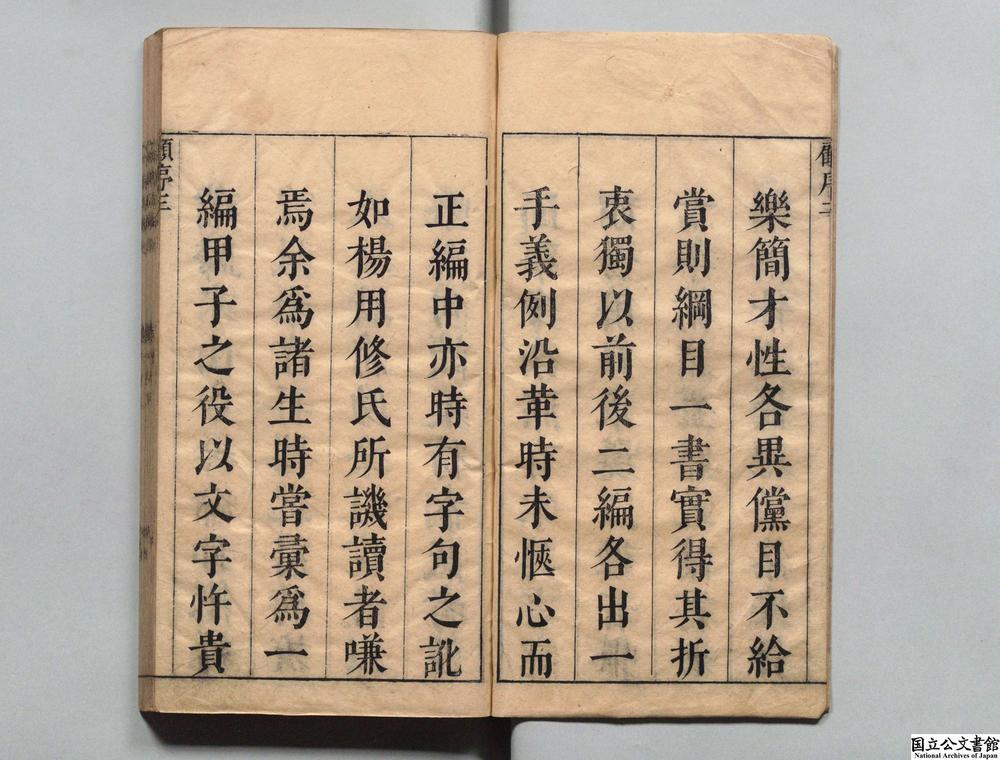 樂簡才性各異儻目不給
賞則綱目一書實得其折
衷獨以前後二編各出一
手義例沿革時未愜心而
正編中亦時有字句之訛
如楊用修氏所譏讀者嗛
焉余爲諸生時嘗彙爲一
編甲子之役以文字忤貴
顧序三
国立公文書館
National Archives of Japan